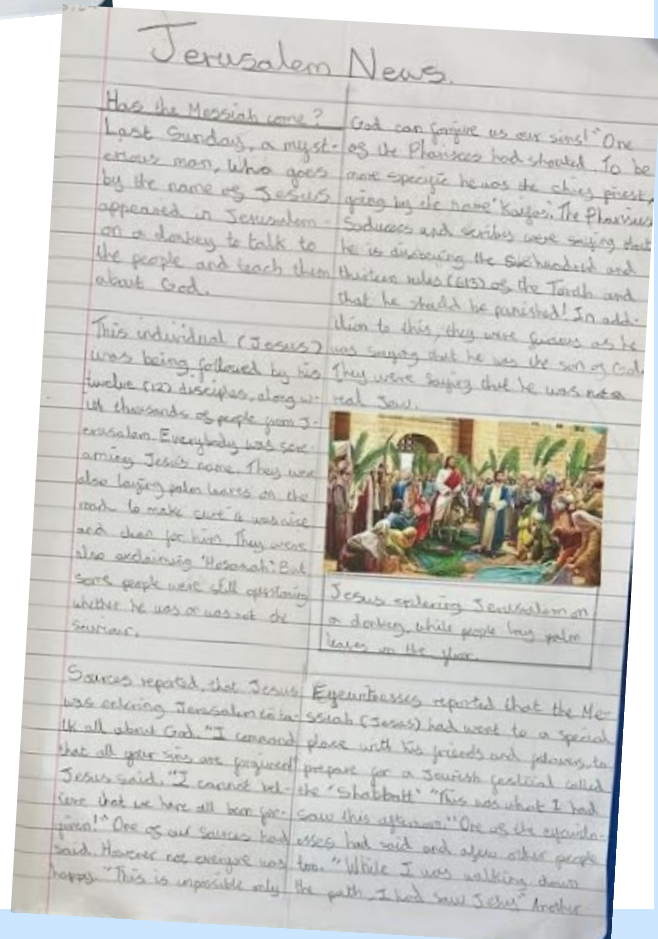 Jerusalem News.
Has the Messiah come?
Last Sunday, a myst-
erious man, Who goes
by the name of Jesus
appeared in Jerusalem
on a donkey to talk to
the people and teach them
about God.
This individual (Jesus)
was being followed by his
twelve (12) disciples, along wi-
th thousands of people from J-
erusalem. Everybody was scre-
aming Jesus name. They were
also laying palm leaves on the
road to make sure it was nice
and clean for him. They were
also exclaiming 'Hosanah'. But
some people were still questioning
whether he was or was not the
saviour.
Sources reported, that Jesus
was entering Jerusalem to ta-
lk all about God. "I command
that all your sins are forgiven"
Jesus said. "I cannot bel-
ieve that we have all been for-
given!" One of our sources had
said. However not everyone was
happy. "This is impossible only
God can forgive us our sins!" One
of the Pharisees had shouted. To be
more specific he was the chief priest,
going by the name The Pharisees
Saducees and scribes were saying that
he is disobeying the six hundred and
thirteen rules (613) of the Torah and
that he should be panished! In add-
ition to this, they were furious as he
was saying that he was the son of God.
They were saying that he was not a
real Jew.
Jesus entering Jerusalem on
a donkey, while people lay palm
leaves on the floor.
Eyewitnesses reported that the Me-
ssiah (Jesus) had went to a special
place with his friends and followers, to
prepare for a Jewish festival called
the 'Shabbatt' "This was what I had
saw this afternoon." One of the eyewitn-
esses had said and a few other people
too. "While I was walking down
the path, I had saw Jesus" Another